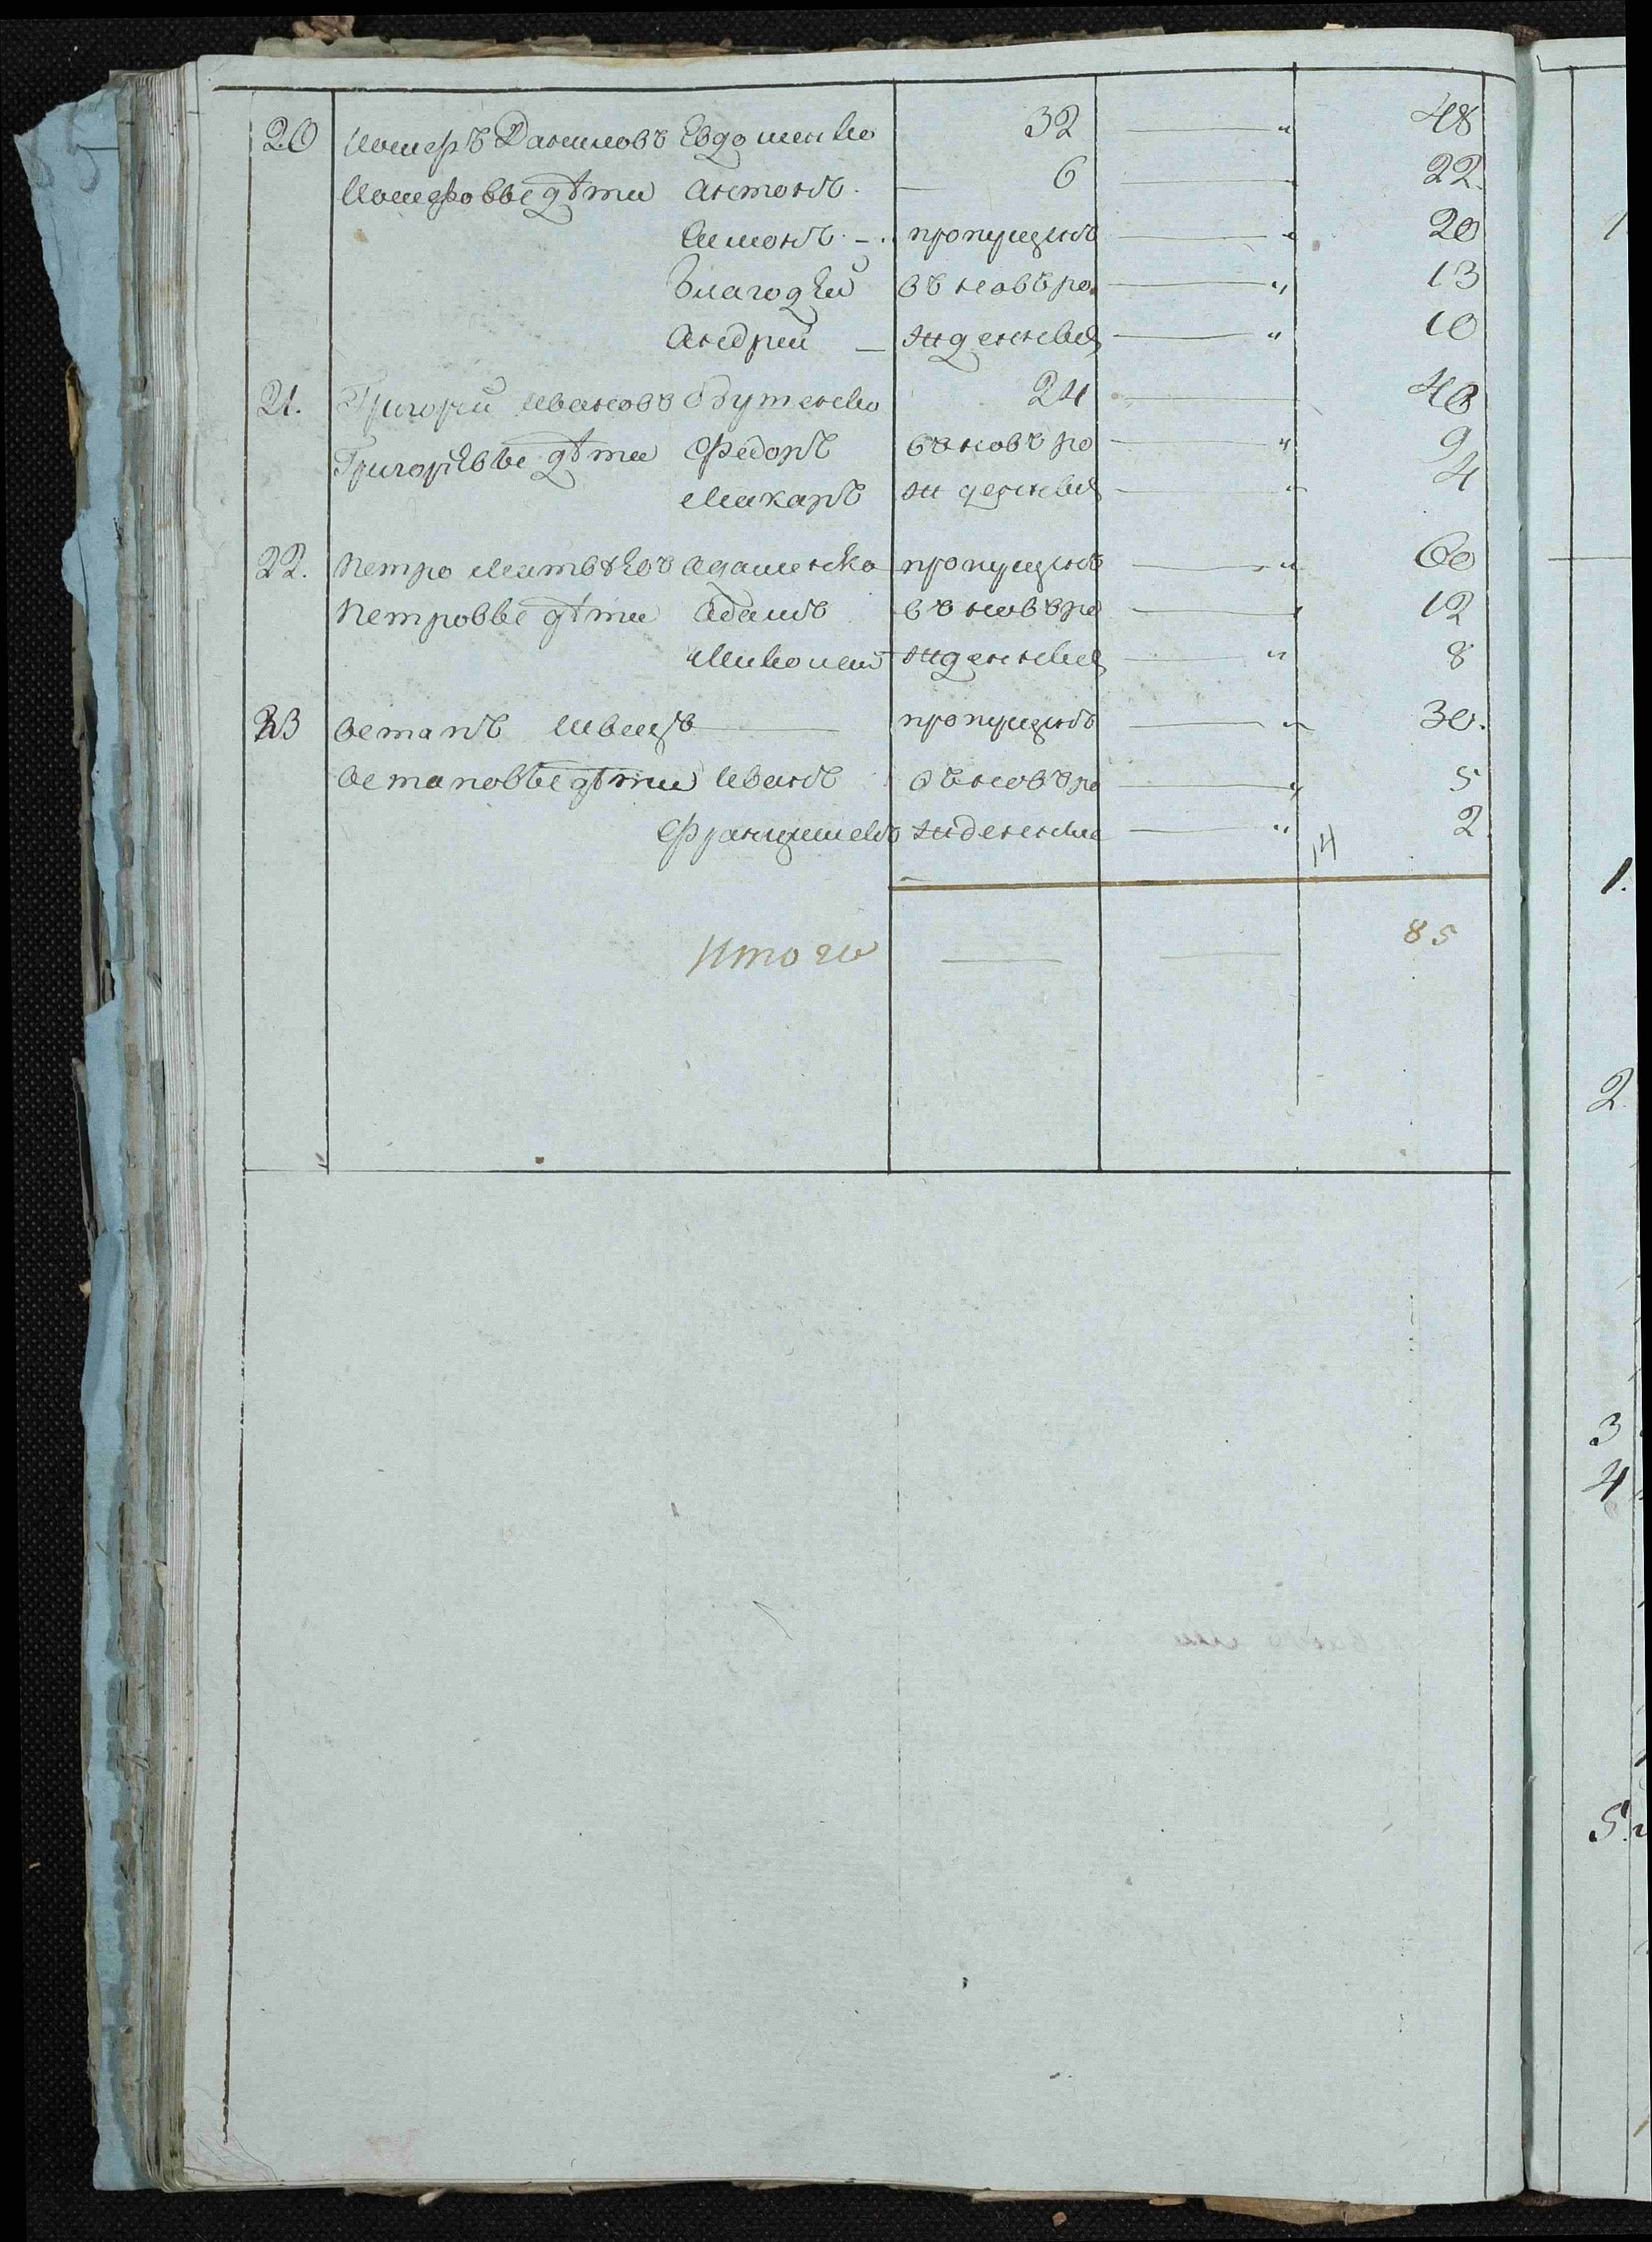 20 Иосифъ Даниловъ Евдоменко 32 — " 48
Иосифовы дѣти Антонъ. — 6 — 22.
Симонъ — пропущенъ — " 20
Благодѣй въ новѣ ро — " 13
Андрей — жденныя — " 10
21. Григорей Ивановъ 24 — 40
Григорьевы дѣти Федоръ въ новъ ро — " 9
Макаръ жденныя — " 4
22. Петро Матвѣевъ Адаменко пропущенъ — " 60
Петровы дѣти Адамъ въ новъ ро — " 12
Миколай жденныя — " 8
23 Остапъ Швецъ — пропущенъ — " 30.
Остаповы дѣти Иванъ въ новъ ро — " 5
Францишекъ жденные — " 2.
14
Итого — — 85
1.
2.
3
4
5.